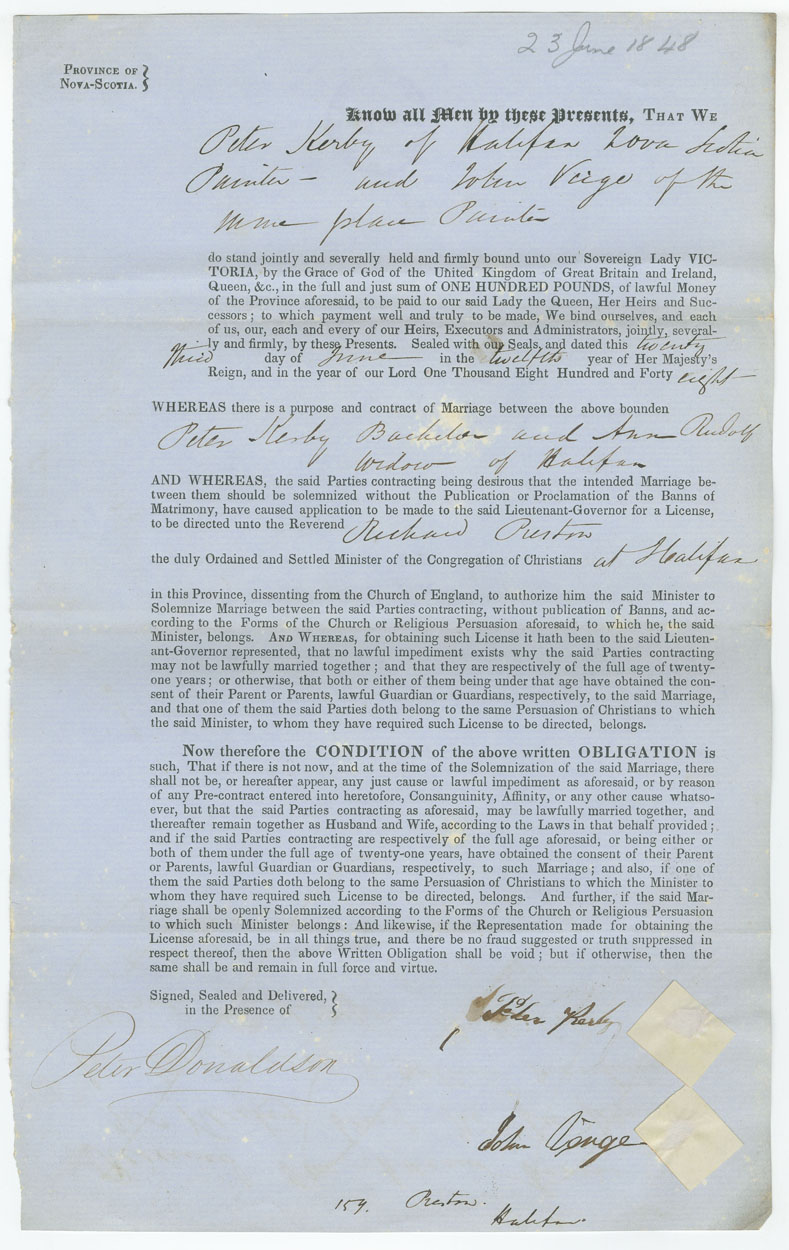 23 June 1848
PROVINCE OF
NOVA-SCOTIA.
Know all Men by these Presents, THAT WE
Peter Kerby of Halifax Nova Scotia
Painter – and John Verge of the
same place Painter
do stand jointly and severally held and firmly bound unto our Sovereign Lady VIC-
TORIA, by the Grace of God of the United Kingdom of Great Britain and Ireland,
Queen, &c., in the full and just sum of ONE HUNDRED POUNDS, of lawful Money
of the Province aforesaid, to be paid to our said Lady the Queen, Her Heirs and Suc-
cessors; to which payment well and truly to be made, We bind ourselves, and each
of us, our, each and every of our Heirs, Executors and Administrators, jointly, several-
ly and firmly, by these Presents. Sealed with our Seals, and dated this twenty
third day of June in the twelfth year of Her Majesty's
Reign, and in the year of our Lord One Thousand Eight Hundred and Forty eight
WHEREAS there is a purpose and contract of Marriage between the above bounden
Peter Kerby Bachelor and Ann Rudolf
Widow of Halifax
AND WHEREAS, the said Parties contracting being desirous that the intended Marriage be-
tween them should be solemnized without the Publication or Proclamation of the Banns of
Matrimony, have caused application to be made to the said Lieutenant-Governor for a License,
to be directed unto the Reverend Richard Preston
the duly Ordained and Settled Minister of the Congregation of Christians at Halifax
in this Province, dissenting from the Church of England, to authorize him the said Minister to
Solemnize Marriage between the said Parties contracting, without publication of Banns, and ac-
cording to the Forms of the Church or Religious Persuasion aforesaid, to which he, the said
Minister, belongs. AND WHEREAS, for obtaining such License it hath been to the said Lieuten-
ant-Governor represented, that no lawful impediment exists why the said Parties contracting
may not be lawfully married together; and that they are respectively of the full age of twenty-
one years; or otherwise, that both or either of them being under that age have obtained the con-
sent of their Parent or Parents, lawful Guardian or Guardians, respectively, to the said Marriage,
and that one of them the said Parties doth belong to the same Persuasion of Christians to which
the said Minister, to whom they have required such License to be directed, belongs.
Now therefore the CONDITION of the above written OBLIGATION is
such, That if there is not now, and at the time of the Solemnization of the said Marriage, there
shall not be, or hereafter appear, any just cause or lawful impediment as aforesaid, or by reason
of any Pre-contract entered into heretofore, Consanguinity, Affinity, or any other cause whatso-
ever, but that the said Parties contracting as aforesaid, may be lawfully married together, and
thereafter remain together as Husband and Wife, according to the Laws in that behalf provided;
and if the said Parties contracting are respectively of the full age aforesaid, or being either or
both of them under the full age of twenty-one years, have obtained the consent of their Parent
or Parents, lawful Guardian or Guardians, respectively, to such Marriage; and also, if one of
them the said Parties doth belong to the same Persuasion of Christians to which the Minister to
whom they have required such License to be directed, belongs. And further, if the said Mar-
riage shall be openly Solemnized according to the Forms of the Church or Religious Persuasion
to which such Minister belongs: And likewise, if the Representation made for obtaining the
License aforesaid, be in all things true, and there be no fraud suggested or truth suppressed in
respect thereof, then the above Written Obligation shall be void; but if otherwise, then the
same shall be and remain in full force and virtue.
Signed, Sealed and Delivered,
in the Presence of
Peter Kerby
Peter Donaldson
John Verge
159. Preston.
Halifax.